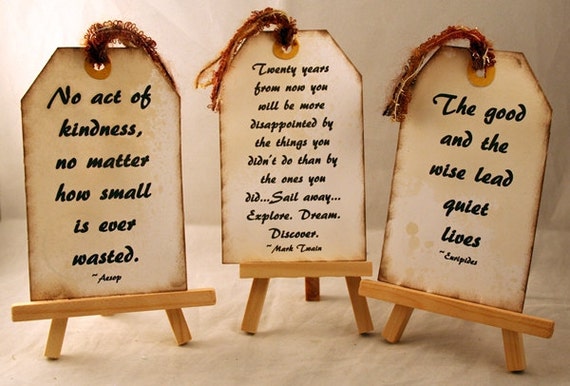 No act of
kindness,
no matter
how small
is ever
wasted.
~Aesop
Twenty years
from now you
will be more
disappointed by
the things you
didn't do than by
the ones you
did...Sail away...
Explore. Dream.
Discover.
~Mark Twain
The good
and the
wise lead
quiet
lives
~Euripides